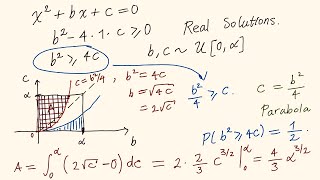 x² + bx + c = 0
b² - 4·1·c ≥ 0
b² ≥ 4c
Real Solutions.
b, c ~ U[0, α]
c
α
c = b²/4
α
b
, b² = 4c
b = √4c
= 2√c
b²/4 ≥ c.
c = b²/4
Parabola
P(b² ≥ 4c) = 1/2.
A = ∫₀^α (2√c - 0) dc = 2 · 2/3 c^3/2 |₀^α = 4/3 α^3/2